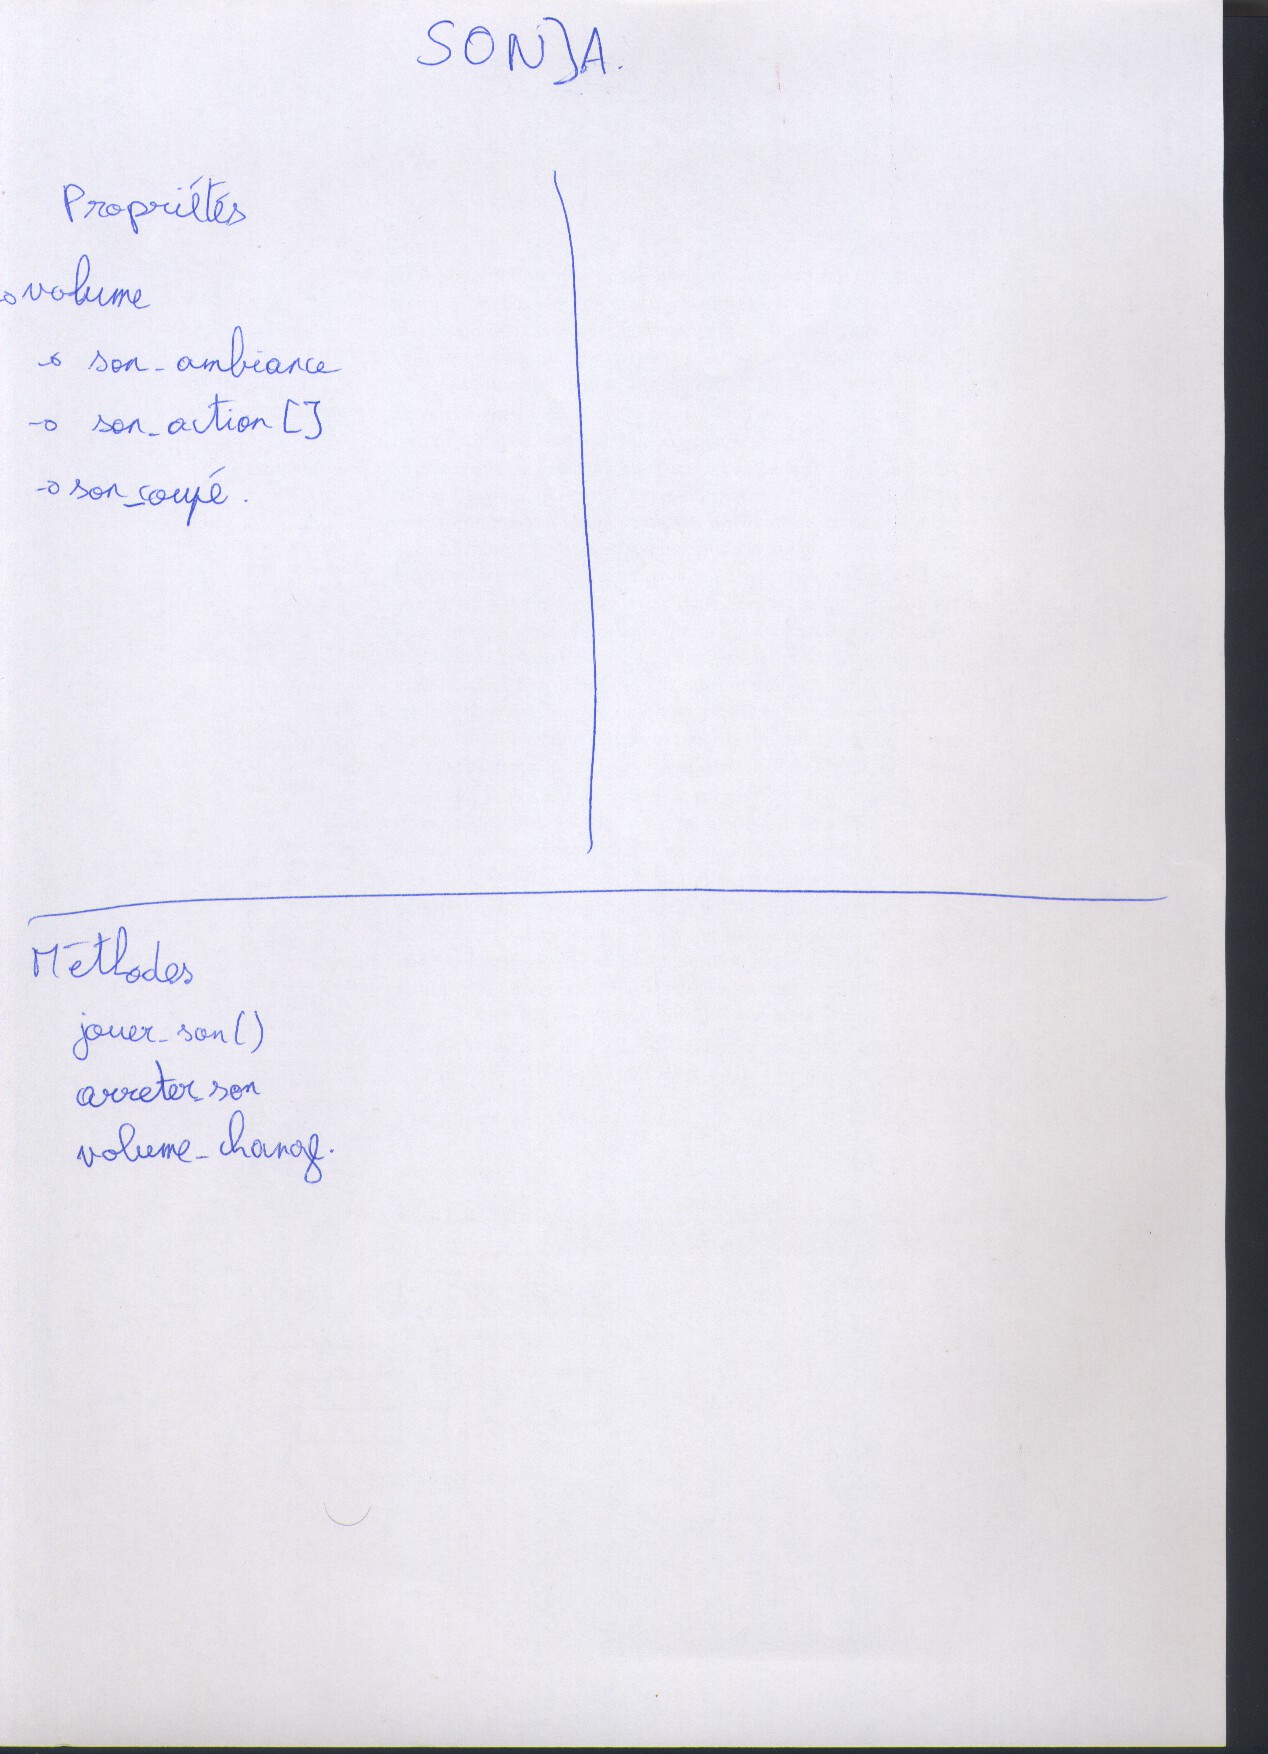 SONJA.
Propriétés
→ volume
→ son_ambiance
→ son_action []
→ son_coupé.
Méthodes
jouer_son()
arreter_son
volume_change.